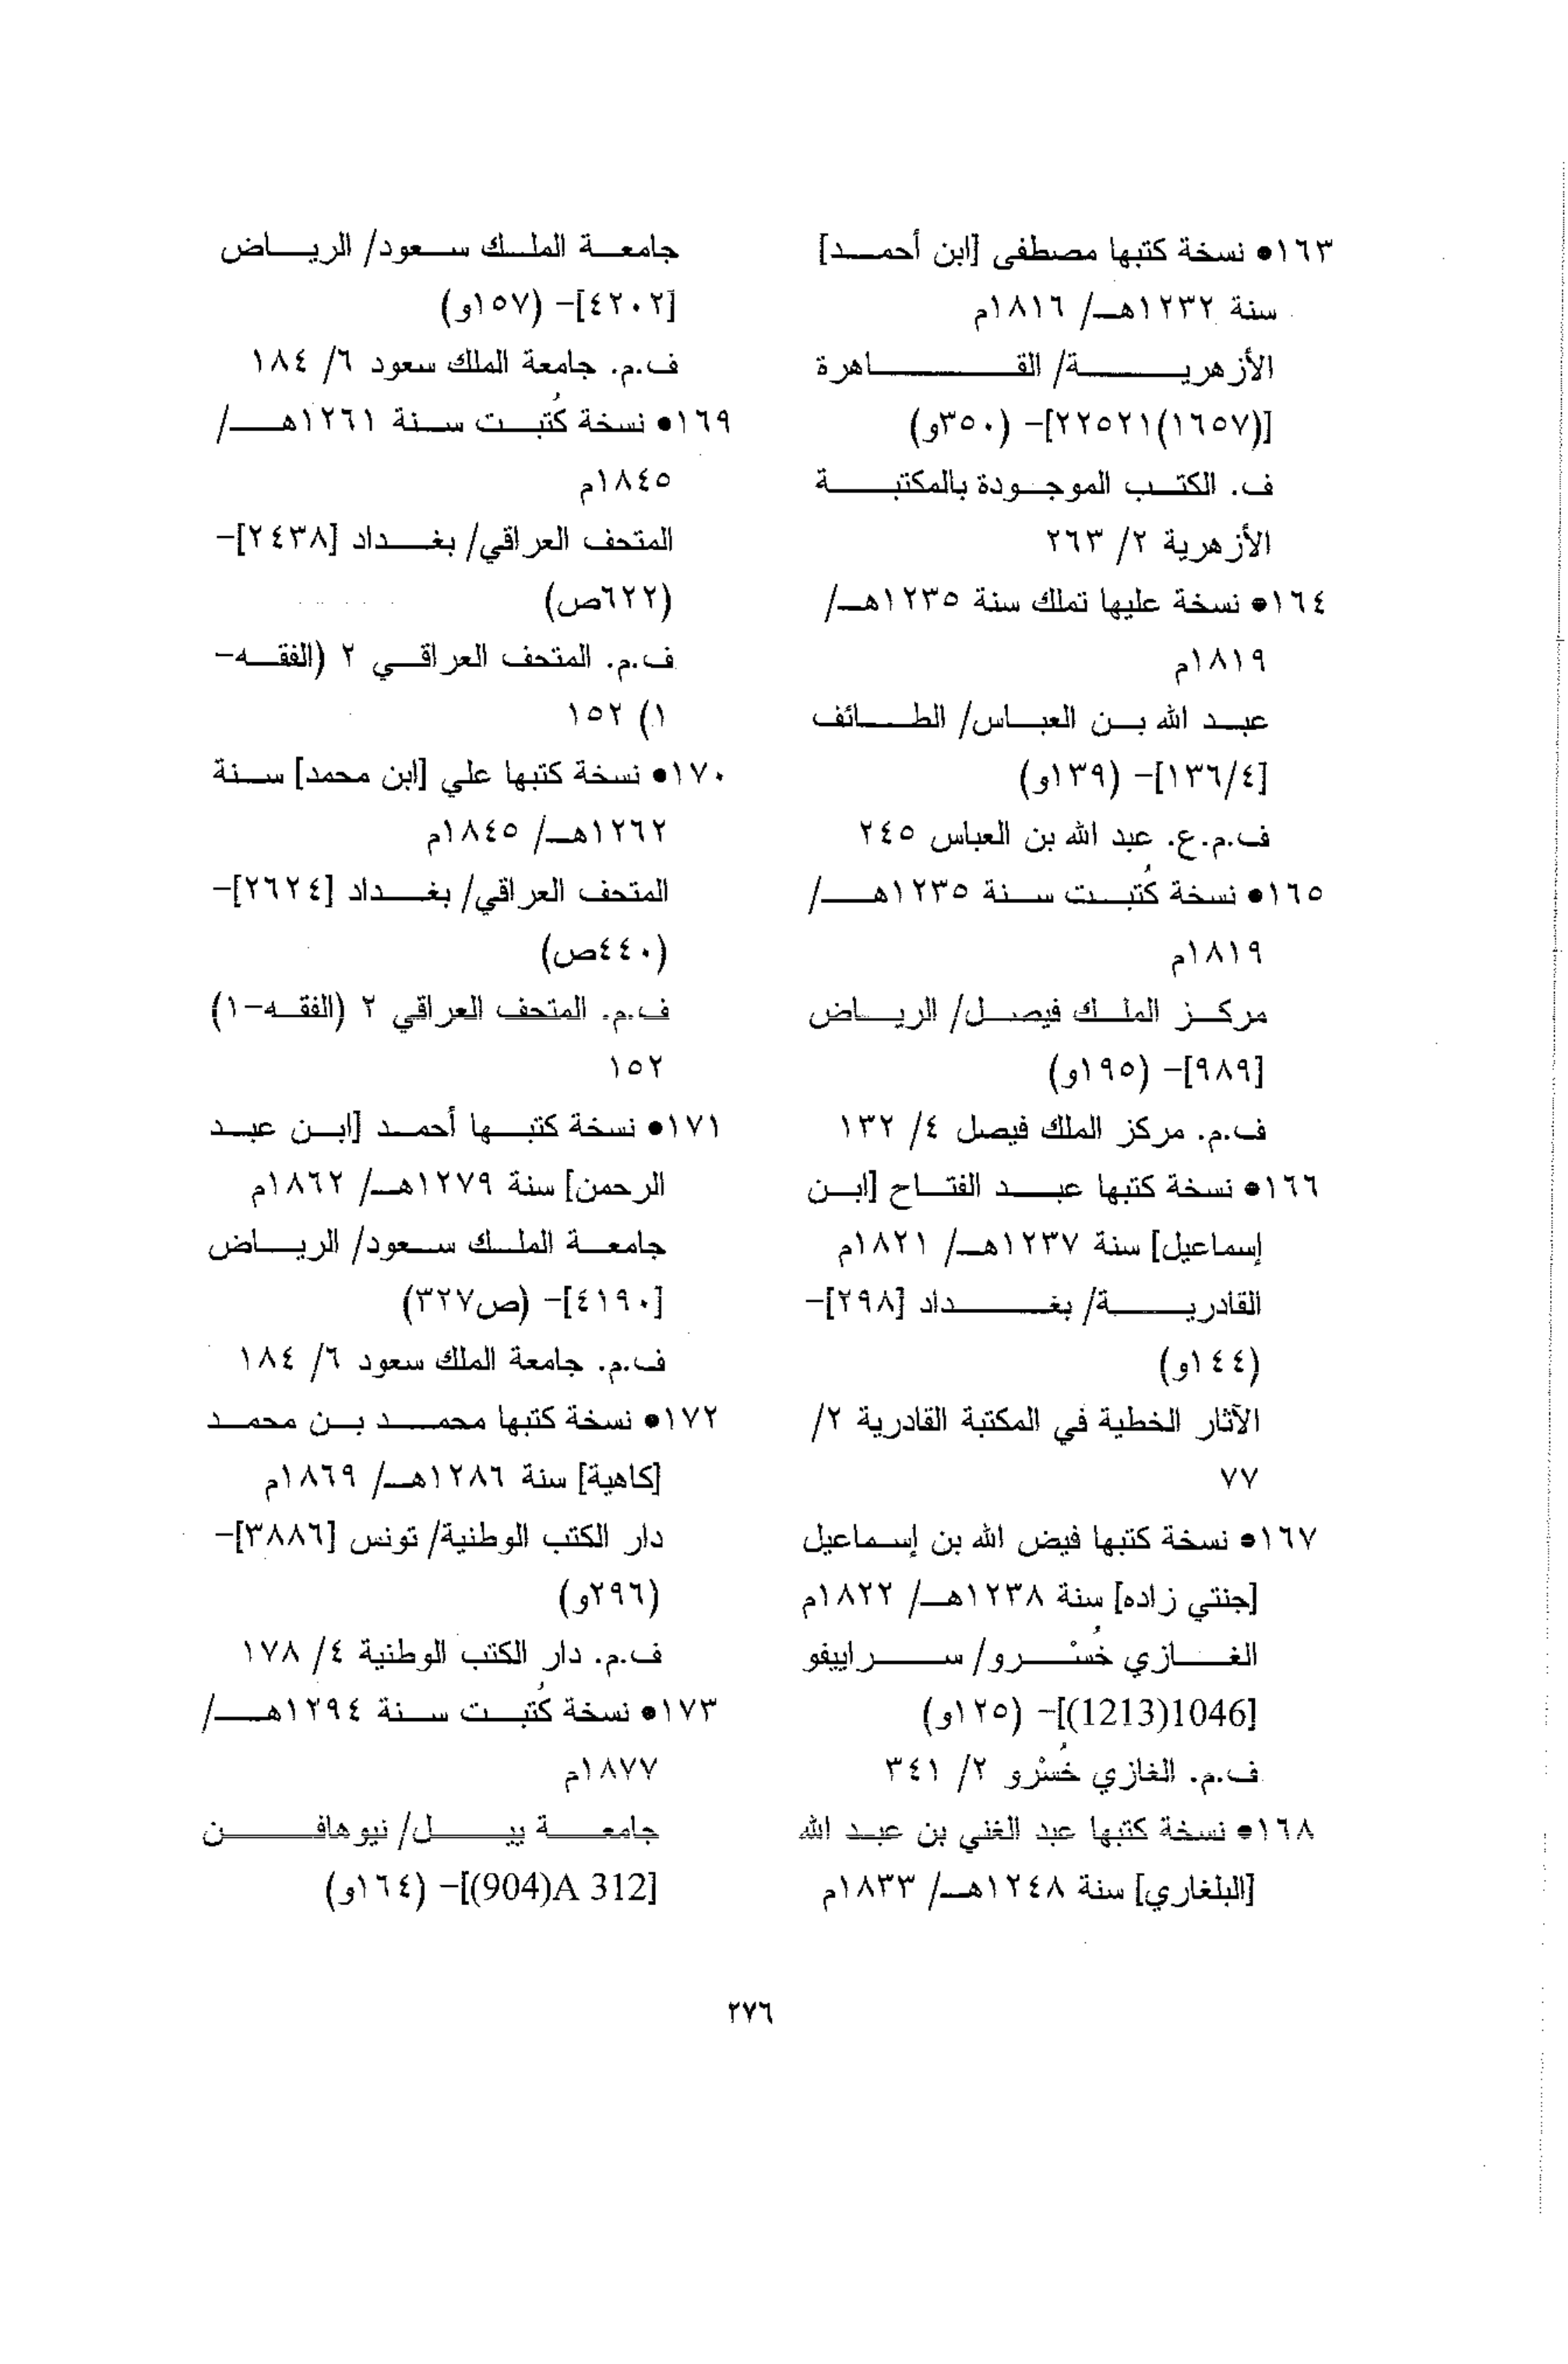 ١٦٣● نسخة كتبها مصطفى [ابن أحمد]
سنة ١٢٣٢هـ/ ١٨١٦م
الأزهرية/ القاهرة
[(١٦٥٧)٢٢٥٢١]- (٣٥٠و)
ف. الكتب الموجودة بالمكتبة
الأزهرية ٢/ ٢٦٣
١٦٤● نسخة عليها تملك سنة ١٢٣٥هـ/
١٨١٩م
عبد الله بن العباس/ الطائف
[١٣٦/٤]- (١٣٩و)
ف.م.ع. عبد الله بن العباس ٢٤٥
١٦٥● نسخة كُتبت سنة ١٢٣٥هـ/
١٨١٩م
مركز الملك فيصل/ الرياض
[٩٨٩]- (١٩٥و)
ف.م. مركز الملك فيصل ٤/ ١٣٢
١٦٦● نسخة كتبها عبد الفتاح [ابن
إسماعيل] سنة ١٢٣٧هـ/ ١٨٢١م
القادرية/ بغداد [٢٩٨]-
(١٤٤و)
الآثار الخطية في المكتبة القادرية ٢/
٧٧
١٦٧● نسخة كتبها فيض الله بن إسماعيل
[جنتي زاده] سنة ١٢٣٨هـ/ ١٨٢٢م
الغازي خُسْرو/ سراييفو
[1046(1213)]- (١٢٥و)
ف.م. الغازي خُسْرو ٢/ ٣٤١
١٦٨● نسخة كتبها عبد الغني بن عبد الله
[البلغاري] سنة ١٢٤٨هـ/ ١٨٣٣م
جامعة الملك سعود/ الرياض
[٤٢٠٢]- (١٥٧و)
ف.م. جامعة الملك سعود ٦/ ١٨٤
١٦٩● نسخة كُتبت سنة ١٢٦١هـ/
١٨٤٥م
المتحف العراقي/ بغداد [٢٤٣٨]-
(٦٢٢ص)
ف.م. المتحف العراقي ٢ (الفقه-
١) ١٥٢
١٧٠● نسخة كتبها علي [ابن محمد] سنة
١٢٦٢هـ/ ١٨٤٥م
المتحف العراقي/ بغداد [٢٦٢٤]-
(٤٤٠ص)
ف.م. المتحف العراقي ٢ (الفقه-١)
١٥٢
١٧١● نسخة كتبها أحمد [ابن عبد
الرحمن] سنة ١٢٧٩هـ/ ١٨٦٢م
جامعة الملك سعود/ الرياض
[٤١٩٠]- (ص٣٢٧)
ف.م. جامعة الملك سعود ٦/ ١٨٤
١٧٢● نسخة كتبها محمد بن محمد
[كاهية] سنة ١٢٨٦هـ/ ١٨٦٩م
دار الكتب الوطنية/ تونس [٣٨٨٦]-
(٢٩٦و)
ف.م. دار الكتب الوطنية ٤/ ١٧٨
١٧٣● نسخة كُتبت سنة ١٢٩٤هـ/
١٨٧٧م
جامعة ييل/ نيوهافن
[A 312(904)]- (١٦٤و)
٢٧٦